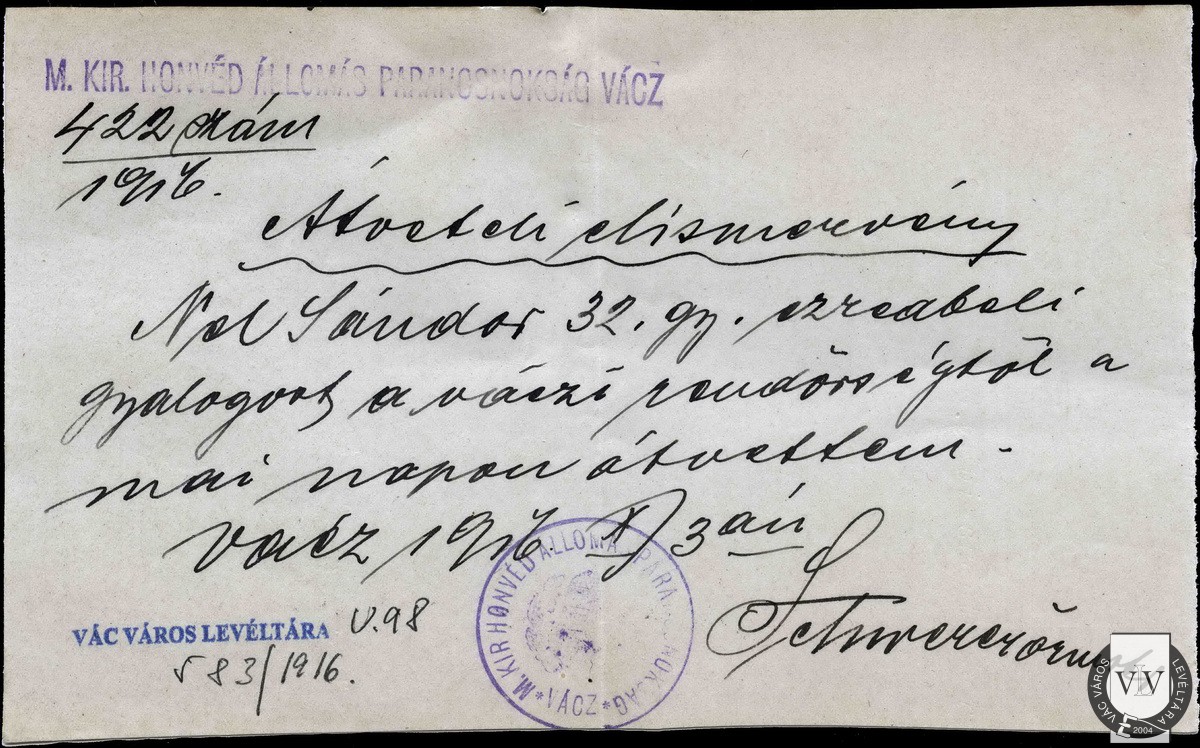 M. KIR. HONVÉD ÁLLOMÁS PARANCSNOKSÁG VÁCZ
422 szám
1916.
Átveteli elismervény
Nél Sándor 32. gy. ezredbeli
gyalogost a váczi rendőrségtől a
mai napon átvettem.
Vácz 1916 X/3 án
M. KIR HONVÉD ÁLLOMÁS PARA NOKSÁG
* VÁCZ *
VÁC VÁROS LEVÉLTÁRA V.98
583/1916.
VÁC VÁROS LEVÉLTÁRA
VLV
2004